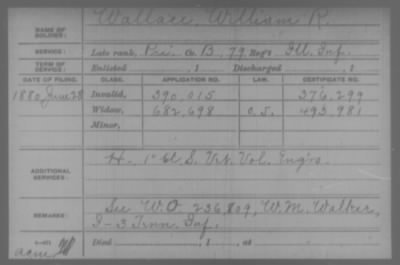 Wallace, William R.
NAME OF SOLDIER:
SERVICE: Late rank, Pri. Co. B, 79 Reg't Ill. Inf.
TERM OF SERVICE: Enlisted , 1 Discharged , 1
DATE OF FILING. CLASS. APPLICATION NO. LAW. CERTIFICATE NO.
1880 June 28 Invalid, 390.015 376.299
Widow, 682.698 C. S. 493.981
Minor,
ADDITIONAL SERVICES: H. 1" U S. Vet. Vol. Eng'rs.
REMARKS: See W.O 236809, W.M. Walker,
I-3 Tenn. Inf.
Died , 1 , at